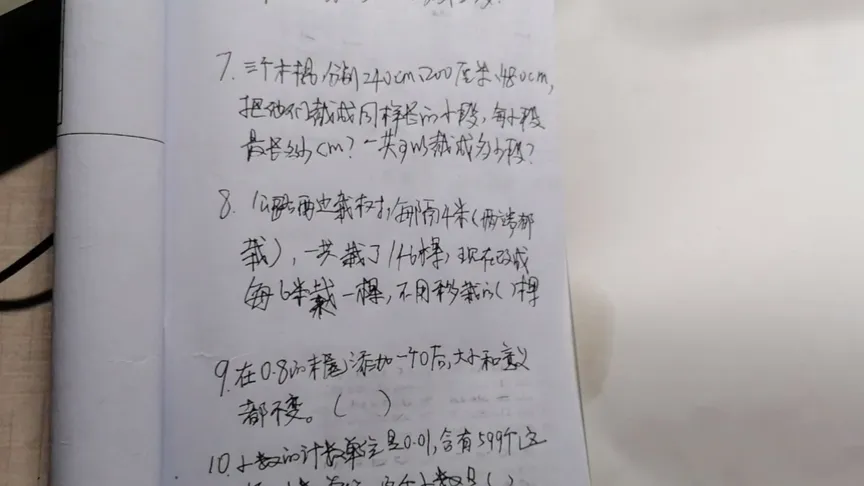 7. 三个木棍,分别240cm、200厘米、480cm,
把他们截成同样长的小段,每小段
最长多少cm?一共可以截成多少段?
8. 公路两边栽树,每隔4米(两端都
栽),一共栽了146棵,现在改成
每6米栽一棵,不用移栽的( )棵
9. 在0.8的末尾添加一个0后,大小和意义
都不变。( )
10. 小数的计数单位是0.01,含有599个这
个小数是( )